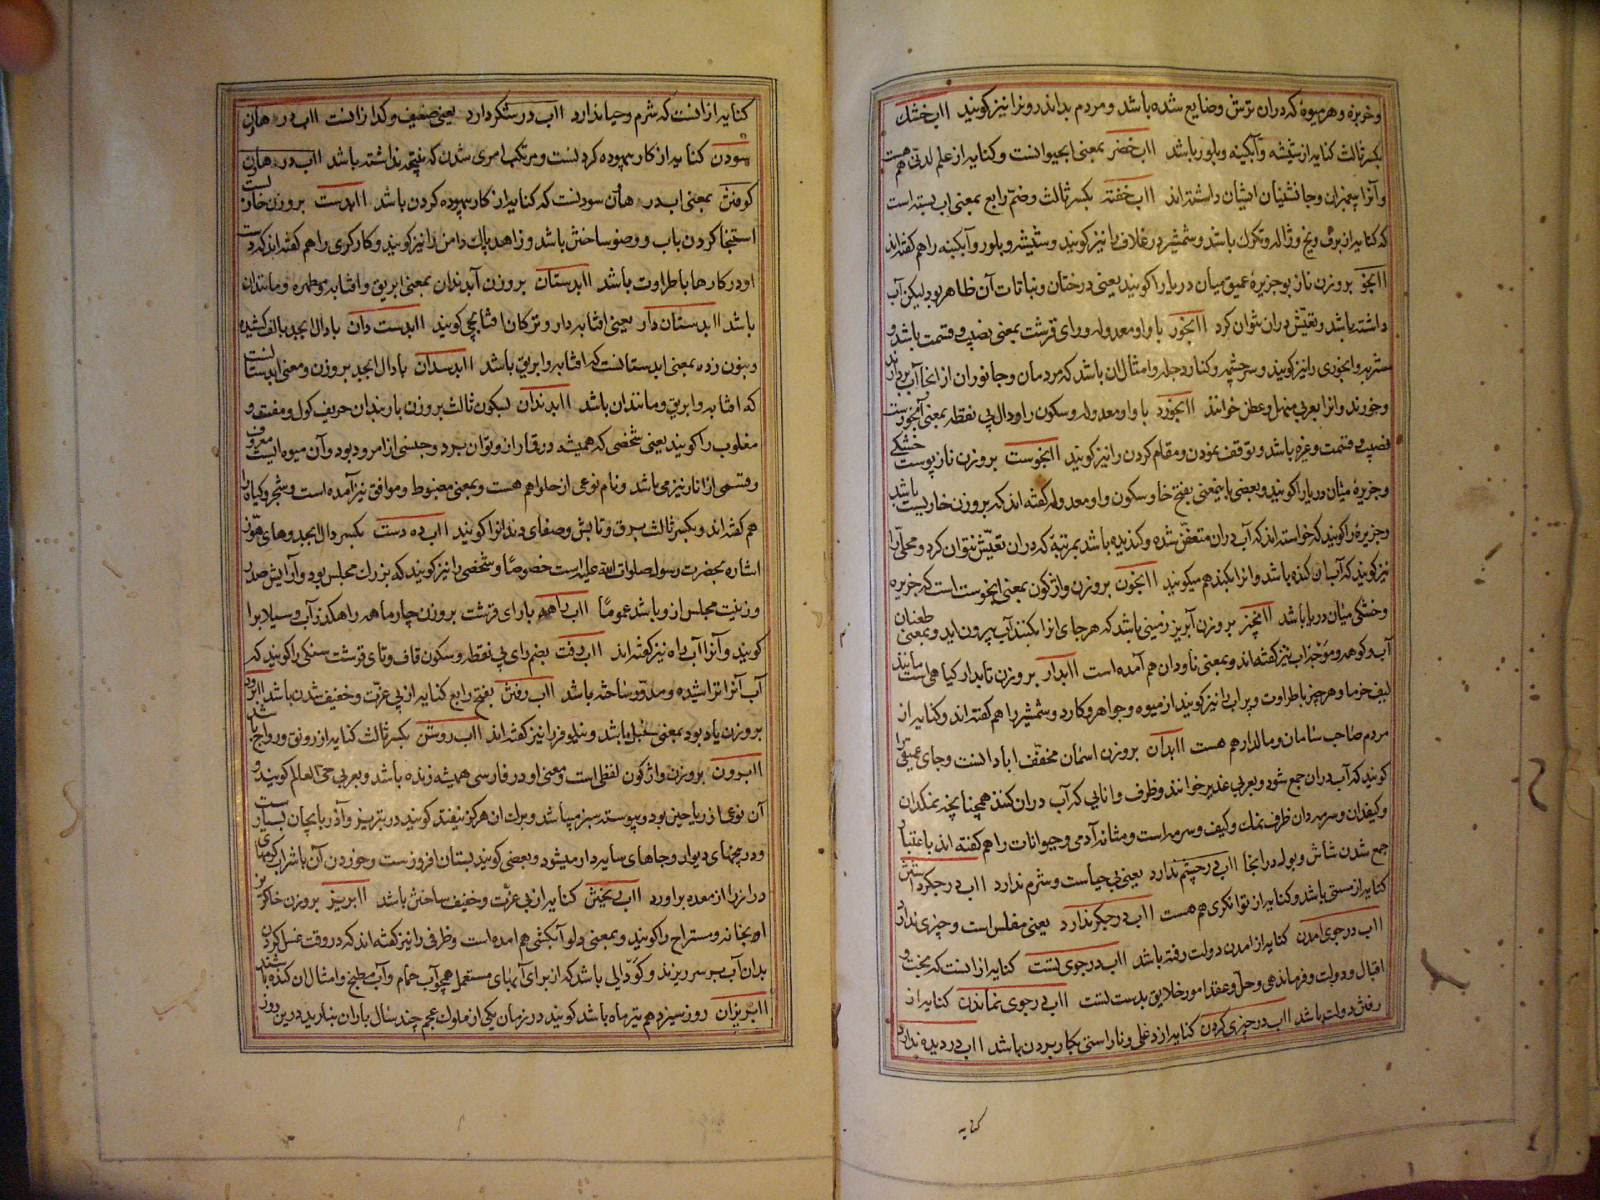 و خربزه و هر میوه که دران ترش و ضایع شده باشد و مردم بد اندرون را نیز کویند ااب خشک
بکسر ثالث کنایه از شیشه و آبکینه و بلور باشد ااب خضر بمعنی ابحیوانست و کنایه از علم لدنی هم هست
و آنرا پیمبران و جانشینان ایشان داشته اند ااب خفته بکسر ثالث و ضم رابع بمعنی اب بسته است
که کنایه از برف و یخ و ژاله و تکرک باشد و شمشیر در غلاف را نیز کویند و شیشه و بلور و آبکینه را هم کفته اند
اابخو بروزن نازبو جزیرهٔ عمیق میان دریا را کویند یعنی درختان و نباتات آن ظاهر بود لیکن آب
داشته باشد و تعیش دران نتوان کرد اابخور با واو معدوله و رای قرشت بمعنی نصیب و قسمت باشد و
مشربه و ابخوری را نیز کویند و سرچشمه و کنار دجله و امثال ان باشد که مردمان و جانوران از انجا آب بردارند
و خورند و انرا بعربی منهل و عطن خوانند اابخورد با واو معدوله و سکون را و دال بی نقطه بمعنی آبخورست
نصیب و قسمت و غیره باشد و توقف نمودن و مقام کردن را نیز کویند اابخوست بروزن نازپوست خشکی
و جزیرهٔ میان دریا را کویند و بعضی باینمعنی بفتح خا و سکون واو معدوله کفته اند که بروزن خاربست باشد
و جزیرهٔ را کویند که خواسته اند که آب دران متعفن شده و کندیده باشد بمرتبهٔ که دران تعیش نتوان کرد و محلی را
نیز کویند که آب ان کنده باشد و انرا بکند هم میکویند اابخون بروزن واژکون بمعنی ابخوست است که جزیره
و خشکی میان دریا باشد اابخیز بروزن آبریز زمینی باشد که هر جای انرا بکنند آب بیرون اید و بمعنی طغیان
آب و کوهه و موج اب نیز کفته اند و بمعنی ناودان هم آمده است اابدار بروزن تابدار کیاهی است مانند
لیف خرما و هر چیز باطراوت و پراب را نیز کویند از میوه و جواهر و کارد و شمشیر را هم کفته اند و کنایه از
مردم صاحب سامان و مالدار هم هست اابدان بروزن اسمان مخفف ابادانست و جای عمیقی را
کویند که آب دران جمع شود و بعربی غدیر خوانند و ظرف و انائی که آب دران کنند همچنانچه نمکدان
و کیفدان و سرمه دان ظرف نمک و کیف و سرمه است و مثانه آدمی و حیوانات را هم کفته اند باعتبار
جمع شدن شاش و بول در انجا ااب در چشم ندارد یعنی بی حیاست و شرم ندارد ااب در جکر داشتن
کنایه از مستی باشد و کنایه از توانکری هم هست ااب در جکر ندارد یعنی مفلس است و چیزی ندارد
ااب در جوی امدن کنایه از امدن دولت رفته باشد ااب در جوی تست کنایه از انست که بخت و
اقبال و دولت و فرماندهی و حل و عقد امور خلایق بدست تست ااب در جوی نماندن کنایه از
رفتن دولت باشد ااب در چیزی کردن کنایه از دغلی و ناراستی بکار بردن باشد ااب در دیده ندارد
کنایه
کنایه از انست که شرم و حیا ندارد ااب در ستکر دارد یعنی ضعیف و کدازانست ااب در هاون
سودن کنایه از کار بیهوده کردنست و مرتکب امری شدن که نتیجه نداشته باشد ااب در هاون
کوفتن بمعنی اب در هاون سودنست که کنایه از کار بیهوده کردن باشد اابدست بروزن خاربست
استنجا کردن باب و وضو ساختن باشد و زاهد پاک دامن را نیز کویند و کارکری را هم کفته اند که دست
او در کارها باطراوت باشد اابدستان بروزن آبدندان بمعنی ابریق و افتابه و مطهره و مانند ان
باشد اابدستان دار یعنی افتابه دار و ترکان افتابچی کویند اابدست دان با دال ابجد بالف کشیده
و بنون زده بمعنی ابدستانست که افتابه و ابریق باشد اابدسدان با دال ابجد بروزن و معنی ابدستانست
که افتابه و ابریق و مانند ان باشد اابدندان بسکون ثالث بروزن باربندان حریف کول و مفت و
مغلوب را کویند یعنی شخصی که همیشه در قمار ازو توان برد و جنسی از امرود بود و آن میوه ایست معروف
و قسمی از انار نیز می باشد و نام نوعی از حلوا هم هست و بمعنی مضبوط و موافق نیز آمده است و شجر و کیاه را
هم کفته اند و بکسر ثالث برق و تابش و صفای دندانرا کویند ااب ده دست بکسر دال ابجد و های هوز
اشاره بحضرت رسول صلوات الله علیه است خصوصا و شخصی را نیز کویند که بزرک مجلس بود و آرایش صدر
و زینت مجلس ازو باشد عموما ااب راهه بارای قرشت بروزن چارماهه راهکذر آب و سیلاب را
کویند و آنرا آب راه نیز کفته اند ااب رفت بضم رای بی نقطه و سکون قاف و تای قرشت سنکی را کویند که
آب آنرا تراشیده و مدور ساخته باشد ااب رفتن بفتح رابع کنایه از بی عزت و خفیف شدن باشد اابرود
بروزن یاد بود بمعنی سنبل باشد و نیلوفر را نیز کفته اند ااب روشن بکسر ثالث کنایه از رونق و رواج باشد
اابرون بروزن واژکون لفظی است و معنی او در فارسی همیشه زنده باشد و بعربی حی العالم کویند و
آن نوعی از ریاحین بود و پیوسته سبز میباشد و برک ان هرکز نیفتد کویند در تبریز و آذربایجان بسیارست
و در بیخهای دیوار و جاهای سایه دار میشود و بعضی کویند بستان افروزست و خوردن آن با شراب کرمهای
دراز را از معده براورد ااب ریختن کنایه از بی عزت و خفیف ساختن باشد اابریز بروزن خاکریز
ادبخانه و مستراح را کویند و بمعنی دلو آبکشی هم امده است و ظرفی را نیز کفته اند که در وقت غسل کردن
بدان آب بر سر ریزند و کودالی باشد که از برای آبهای مستعمل همچو آب حمام و آب مطبخ و امثال ان کنده باشند
اابریزان روز سیزدهم تیر ماه باشد کویند در زمان یکی از ملوک عجم چند سال باران نبارید درین روز